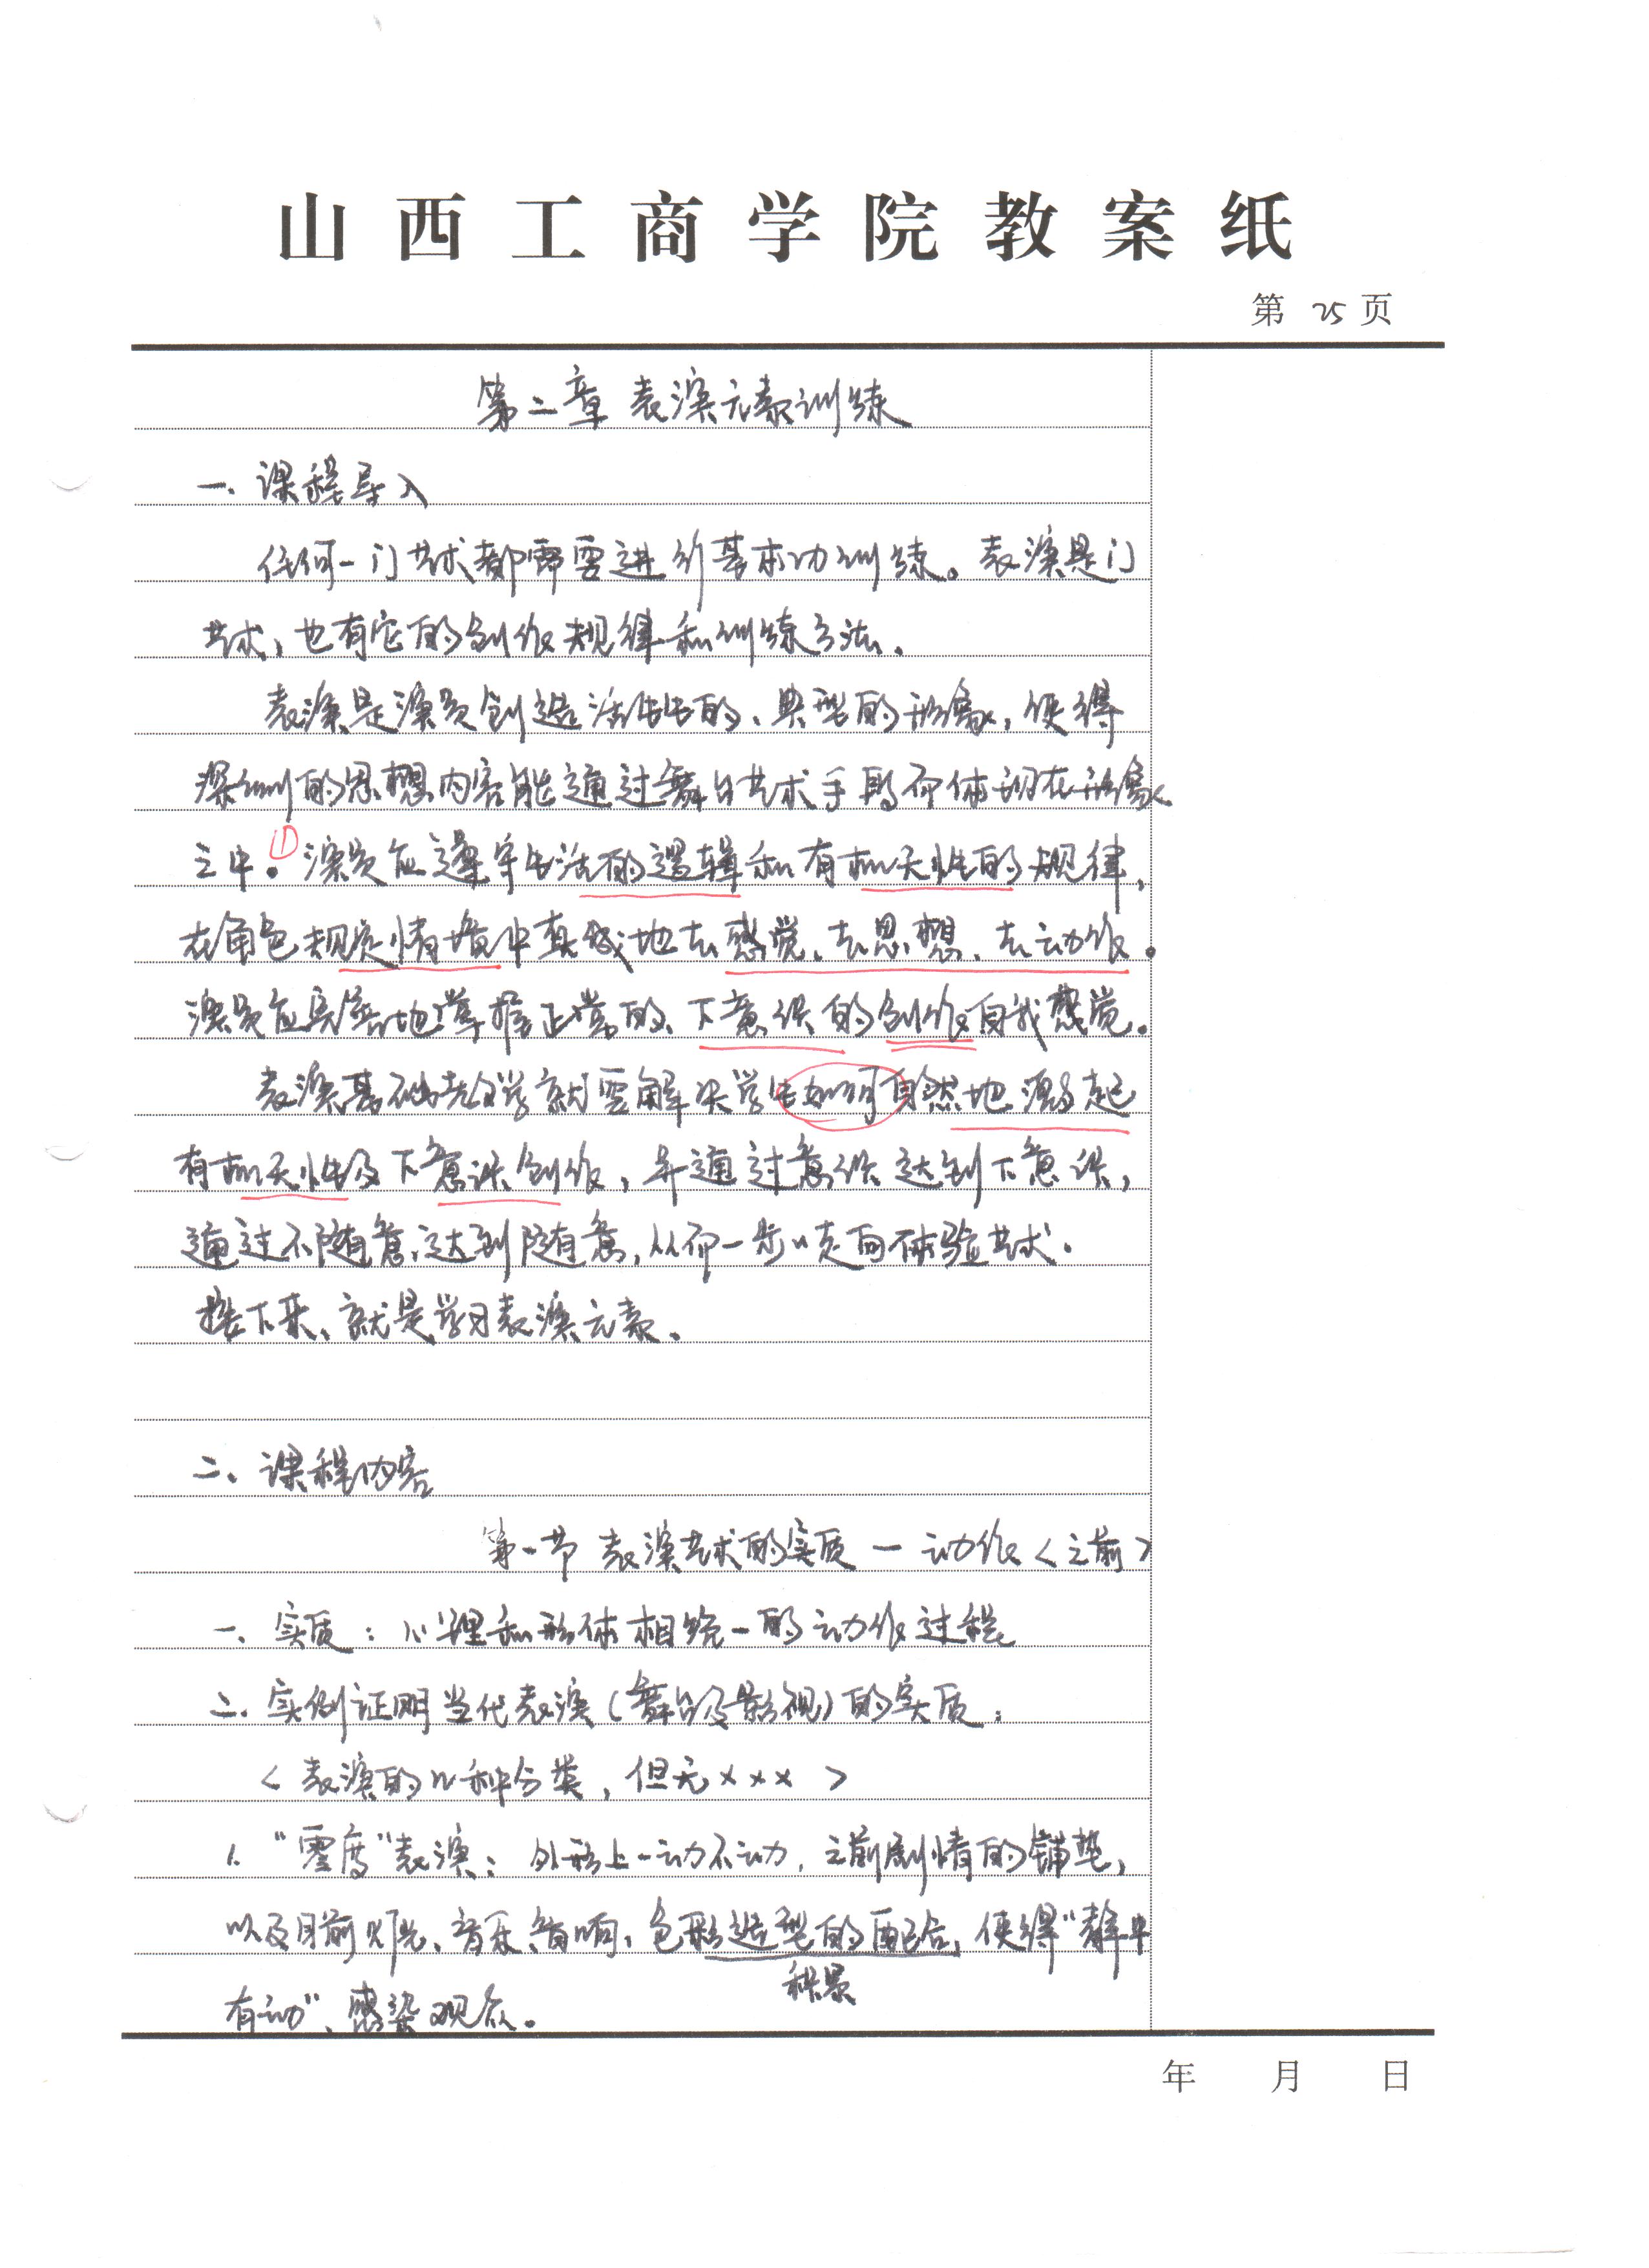 山西工商学院教案纸
第 25 页
第二章 表演元素训练
一、课程导入
任何一门艺术都需要进行基本功训练。表演是门
艺术，也有它的创作规律和训练方法。
表演是演员创造活生生的、典型的形象，使得
深刻的思想内容能通过舞台艺术手段而体现在形象
之中。①演员应遵守生活的逻辑和有机天性的规律，
在角色规定情境中真诚地去感觉、去思想、去动作。
演员应真实地掌握正常的、下意识的创作自我感觉。
表演基础教学就要解决学生如何自然地激起
有机天性及下意识创作，并通过意识达到下意识，
通过不随意达到随意，从而一步々走向体验艺术。
接下来、就是学习表演元素。
二、课程内容
第一节 表演艺术的实质 — 动作〈之前〉
一、实质：心理和形体相统一的动作过程
二、实例证明当代表演（舞台及影视）的实质：
〈表演的几种分类，但无×××〉
1. “零度”表演：外形上一动不动，之前剧情的铺垫，
以及目前灯光、音乐、音响、色彩造型的配合，使得“静中
积累
有动”、感染观众。
年 月 日